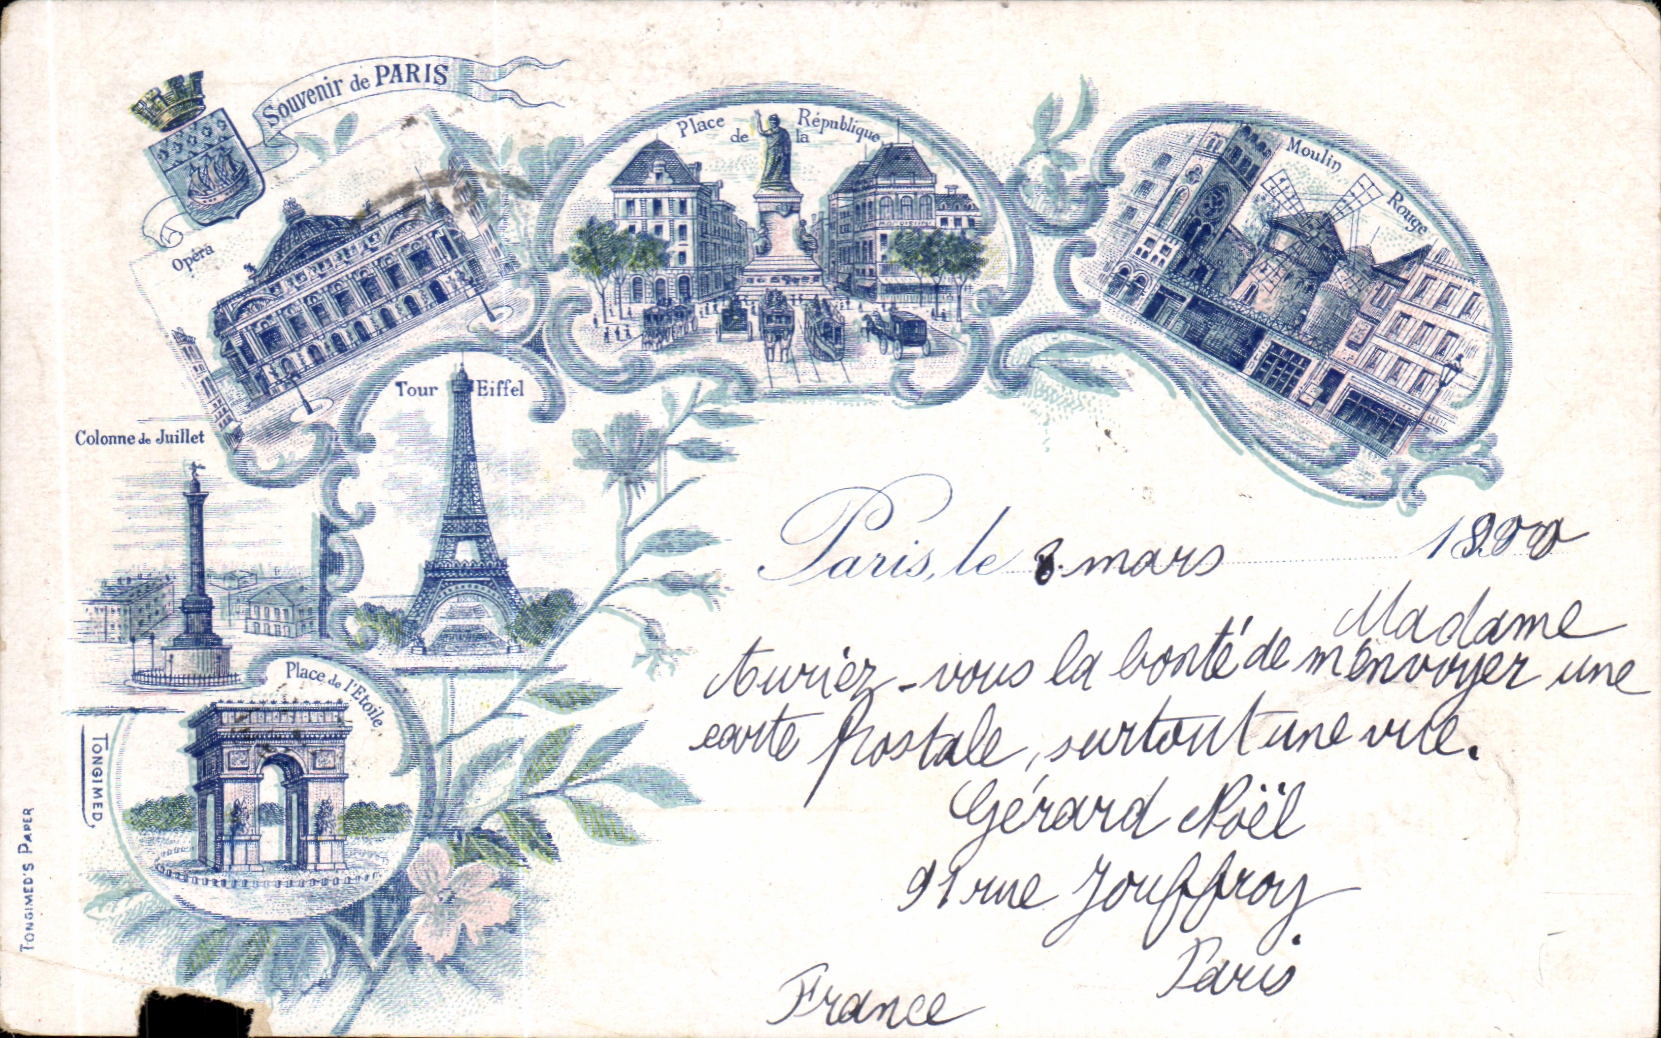 Souvenir de PARIS
Opéra
Place de la République
Moulin Rouge
Tour Eiffel
Colonne de Juillet
Place de l'Etoile
TONGIMED,
TONGIMED'S PAPER
Paris, le 8 mars 1900
Madame
Auriez-vous la bonté de m'envoyer une
carte postale, surtout une vue.
Gérard Noël
91 rue Jouffroy
Paris
France